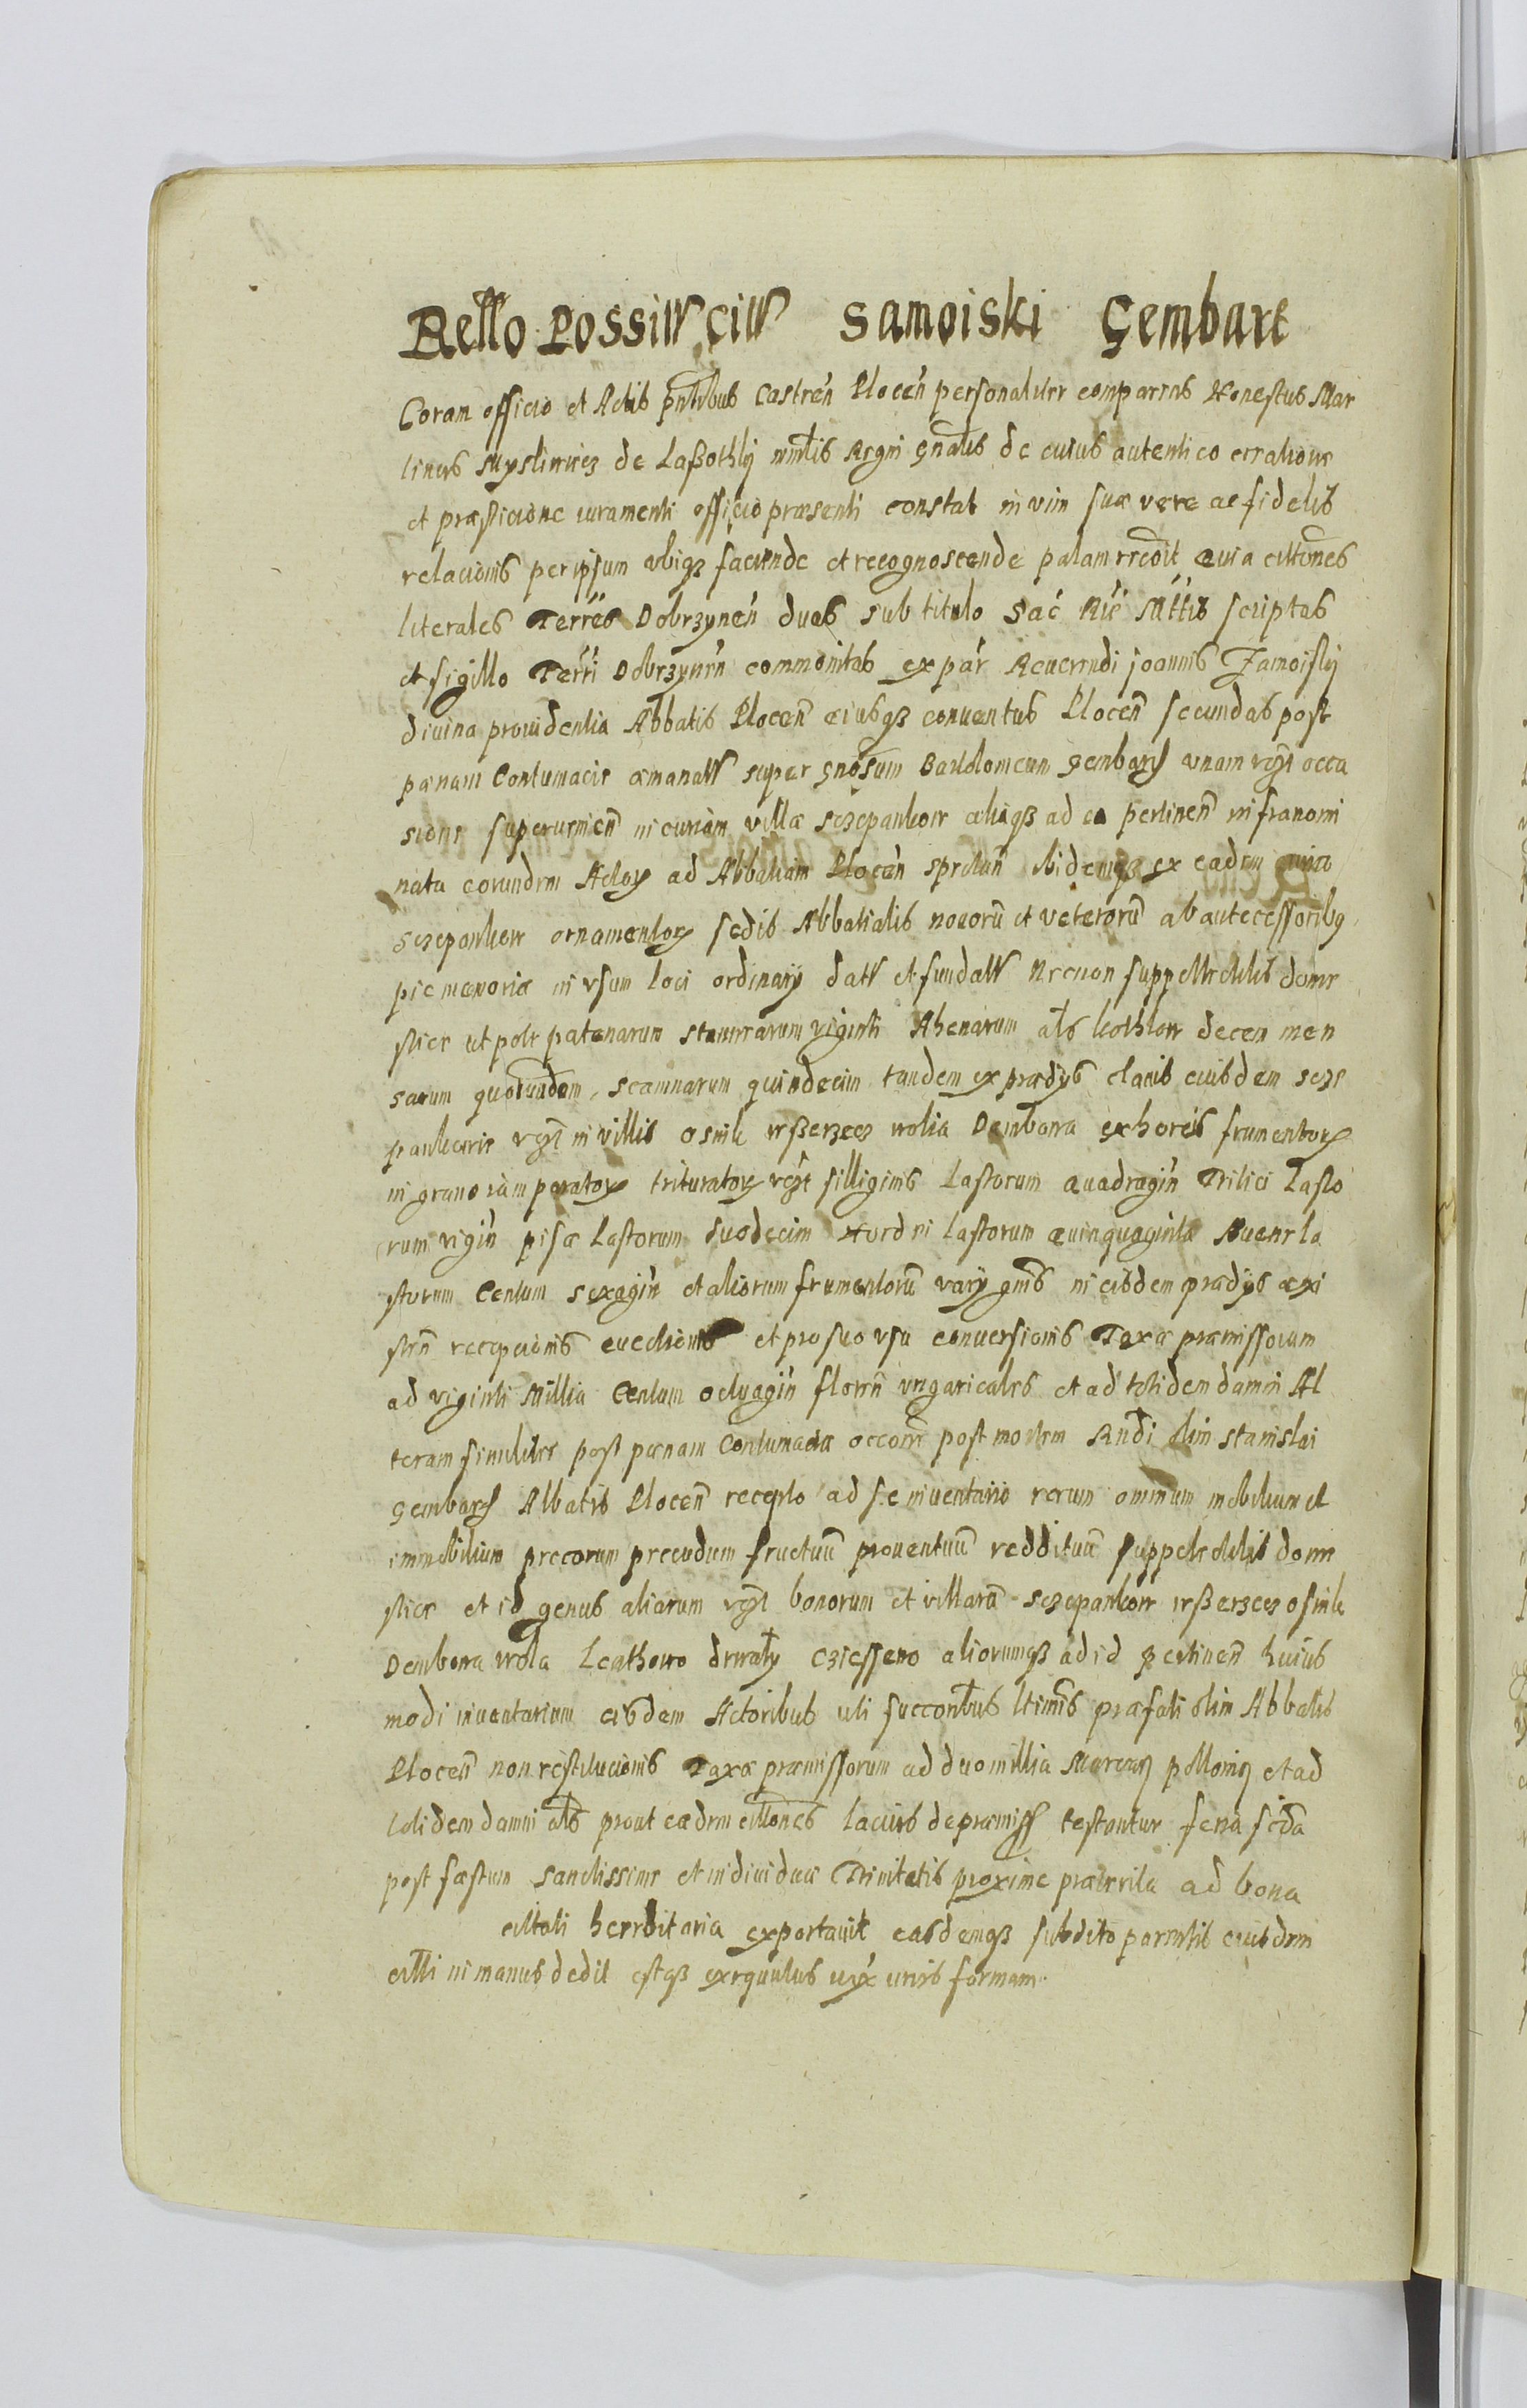 Rello Possiłł Ciłł Samoiski Gembart
Coram officio et Actis pntibus Castren Plocen personaliter comparens Honestus Mar
tinus Mysliwiecz de Laßothky mnlis Regni gnalis de cuius autentico creatione
et præsticione iuramenti officio præsenti constat in vim suæ vere ac fidelis
relacionis per ipsum vbiqз faciende et recognoscende palam recoit Quia citnes
literales Terres Dobrzynen duas sub titulo Sac Rie Mttis scriptas
et sigillo Terri Dobrzynen communitas ex par Reuerendi Joannis Zamoisky
diuina prouidentia Abbatis Plocen eiusqз conuentus Plocen secundas post
pænam Contumacie æmanatł super gnosum Bartolomeum Gembarth vnam rõe occa
sione superuenien in curiam villæ Sczepankow aliaqз ad ea pertinen infranomi
nata eorundem Actor ad Abbatiam Plocen spectan ibidemqз ex eadem curia
Sczepankow ornamentor sedis Abbatialis nouorum et veterorum ab antecessoribus
pie memoriæ in vsum loci ordinarij datł et fundatł Necnon suppellectilis dome
stice ut pote patenarum stannearum viginti Ahenarum als kothlow decem men
sarum quorundem, scamnarum quindecim tandem ex prædijs clauis eiusdem Scze
pankowie in villis Osnik Wßerzecz Wolia Dembowa ex horeis frumentor
in grano iam parator triturator silliginis Lastorum Quadragin Tritici Lasto
rum vigin pisæ Lastorum duodecim Hordei Lastorum Quinquaginta Auene la
storum Centum sexagin et aliorum frumentorum varij gnis in eisdem prædijs æxi
sten recepcionis euectionis et pro suo vsu conuersionis Taxæ præmissorum
ad viginti Millia Centum octuagin floren vngaricales et ad totidem damni Al
teram similiter post pænam Contumaciæ occone post mortem Rndi olim Stanislai
Gembarth Abbatis Plocen recepto ad se inuentario rerum omnium mobilium et
immobilium pecorum pecudum fructuum prouentuum reddituum suppellectilis dome
stice et id genus aliarum bonorum et villarum Sczepankow Wßerzecz Osnik
Dembowa Wola Leathowo Drwaly Cziesseno aliorumqз ad id pertinen huius
modi inuentarium eisdem Actoribus uti succoribus ltimis præfati olim Abbatis
Plocen non restitucionis Taxæ præmissorum ad duo millia Marcar pollonica et ad
totidem damni als prout eædem citnes lacius de præmiss testantur feria scda
post fæstum Sanctissime et indiuiduæ Trinitatis proxime præterita ad bona
citati hereditaria exportauit easdemqз subdito parentis eiusdem
citti in manus dedit estqз exequutus iuris formam.